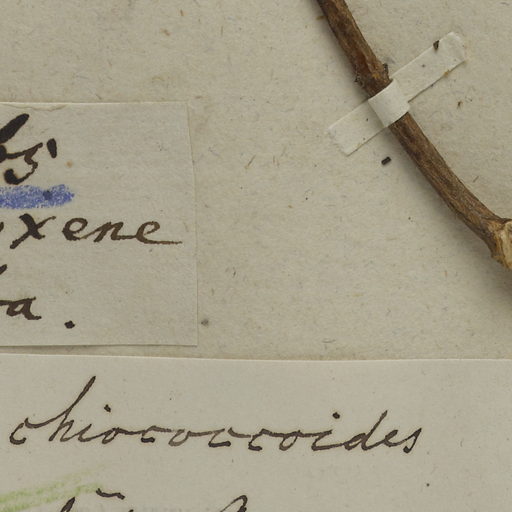 bs
xene
ba.
chiococcoides